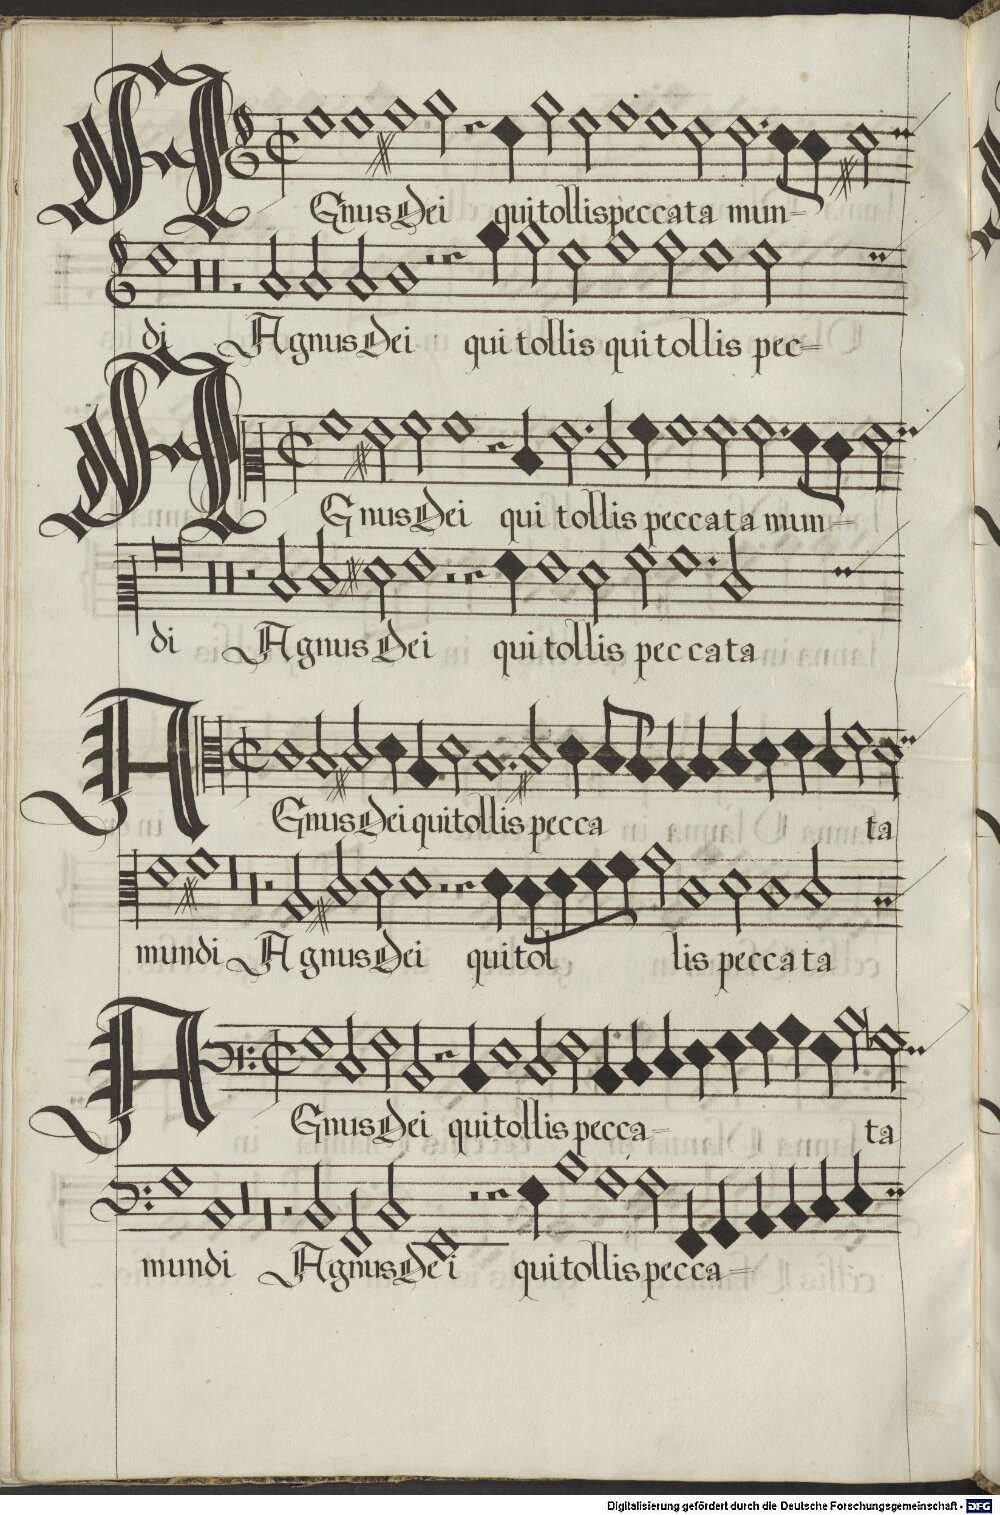 AGnus Dei qui tollis peccata mun-
di Agnus Dei qui tollis qui tollis pec-
AGnus Dei qui tollis peccata mun-
di Agnus Dei qui tollis peccata
AGnus Dei qui tollis pecca ta
mundi Agnus Dei qui tol lis peccata
AGnus Dei qui tollis pecca- ta
mundi Agnus Dei qui tollis pecca-
Digitalisierung gefördert durch die Deutsche Forschungsgemeinschaft - DFG